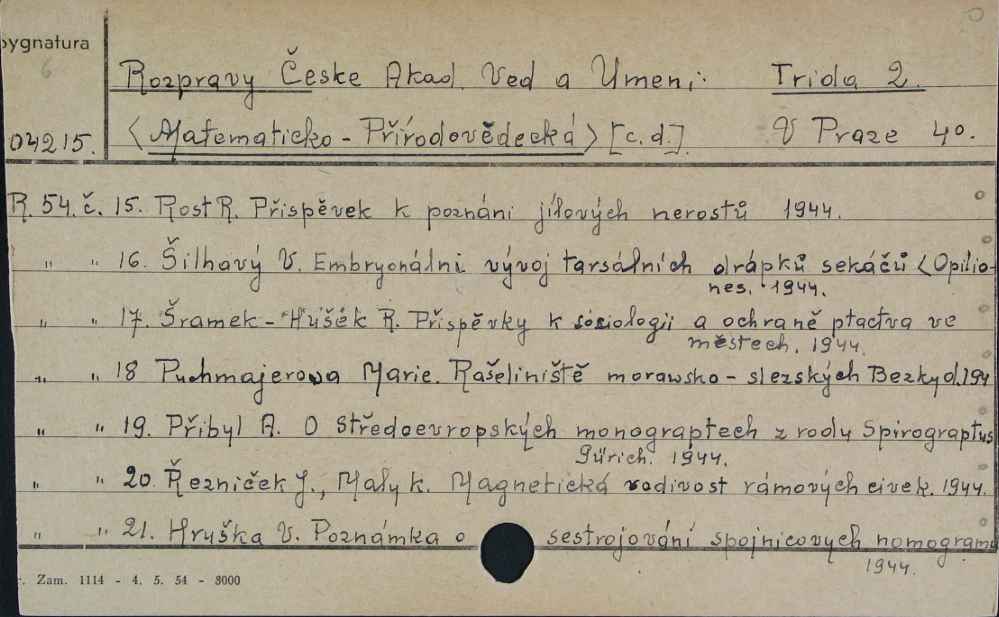 Sygnatura
6
Rozpravy České Akad. Ved a Umeni: Trida 2.
04215. <Matematicko - Přírodovědecká> [c.d.] V Praze 40.
R. 54. č. 15. Rost R. Přispěvek k poznáni jílových nerostů 1944.
" " 16. Šilhavý V. Embryonálni vývoj tarsálních drápků sekáčů <Opilio-
nes. 1944.
" " 17. Šramek - Hušek R. Přispěvky k sociologii a ochraně ptactva ve
městech. 1944.
" " 18 Puchmajerowa Marie. Rašeliniště morawsko - slezských Bezkyd. 194
" " 19. Přibyl A. O Středoevropských monograptech z rodu Spirograptus
Gürich. 1944.
" " 20. Řezniček J., Maly K. Magnetická vodivost rámových civek. 1944.
" " 21. Hruška V. Poznámka o sestrojováni spojnicových nomogramů
1944.
Zam. 1114 - 4. 5. 54 - 8000